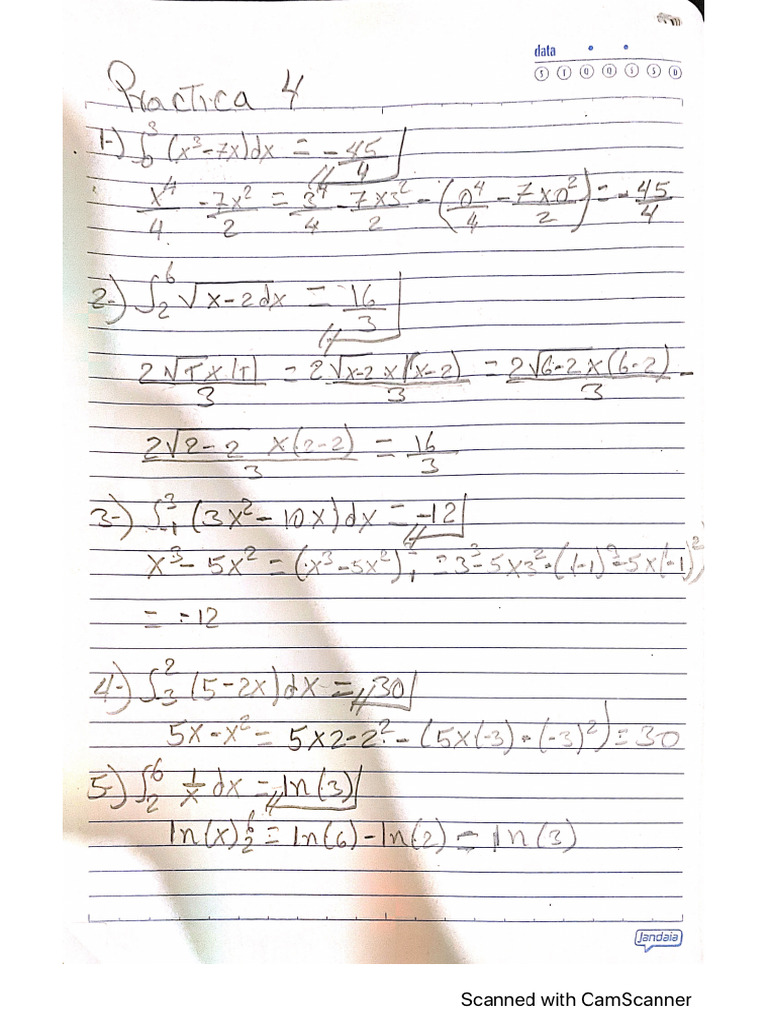 data
S T Q Q S S D
Practica 4
1-) ∫₀³ (x³-7x)dx = -45/4
x⁴/4 - 7x²/2 = 3⁴/4 - 7x3²/2 - (0⁴/4 - 7x0²/2) = -45/4
2-) ∫₂⁶ √x-2dx = 16/3
2√T x (T)/3 = 2√x-2 x (x-2)/3 = 2√6-2 x (6-2)/3 -
2√2-2 x(2-2)/3 = 16/3
3-) ∫₁³ (3x²-10x)dx = -12
x³-5x² = (x³-5x²), = 3³-5x3²-((-1)³-5x(-1)²)
= -12
4-) ∫₃² (5-2x)dx = 30
5x-x² = 5x2-2²-(5x(-3)-(-3)²) = 30
5-) ∫₂⁶ 1/x dx = ln(3)
ln(x)₂⁶ = ln(6)-ln(2) = ln(3)
Jandaia
Scanned with CamScanner